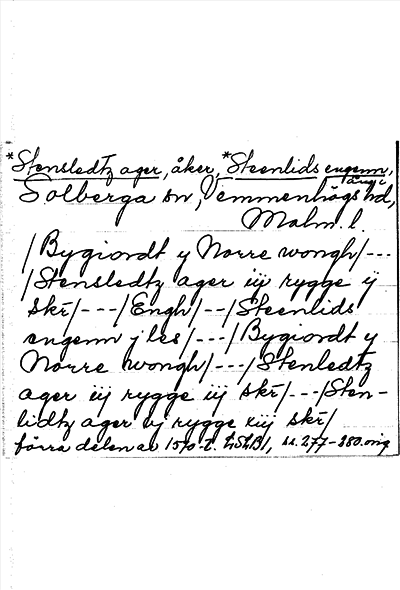 *Stensledtz ager, åker, *Steenlids engenn,
äng i
Solberga sn, Vemmenhögs hd,
Malm. l.
/Bygiordt y Norre wongh/---
/Stensledtz ager iij rygge ij
skr/---/Engh/--/Steenlids
engenn j les/---/Bygiordt y
Norre wongh/---/Stenledtz
ager iij rygge iij skr/---/Sten-
lidtz ager vj rygge xiij skr/
förra delen av 1570-t. LSLB1, ss. 277-280. orig